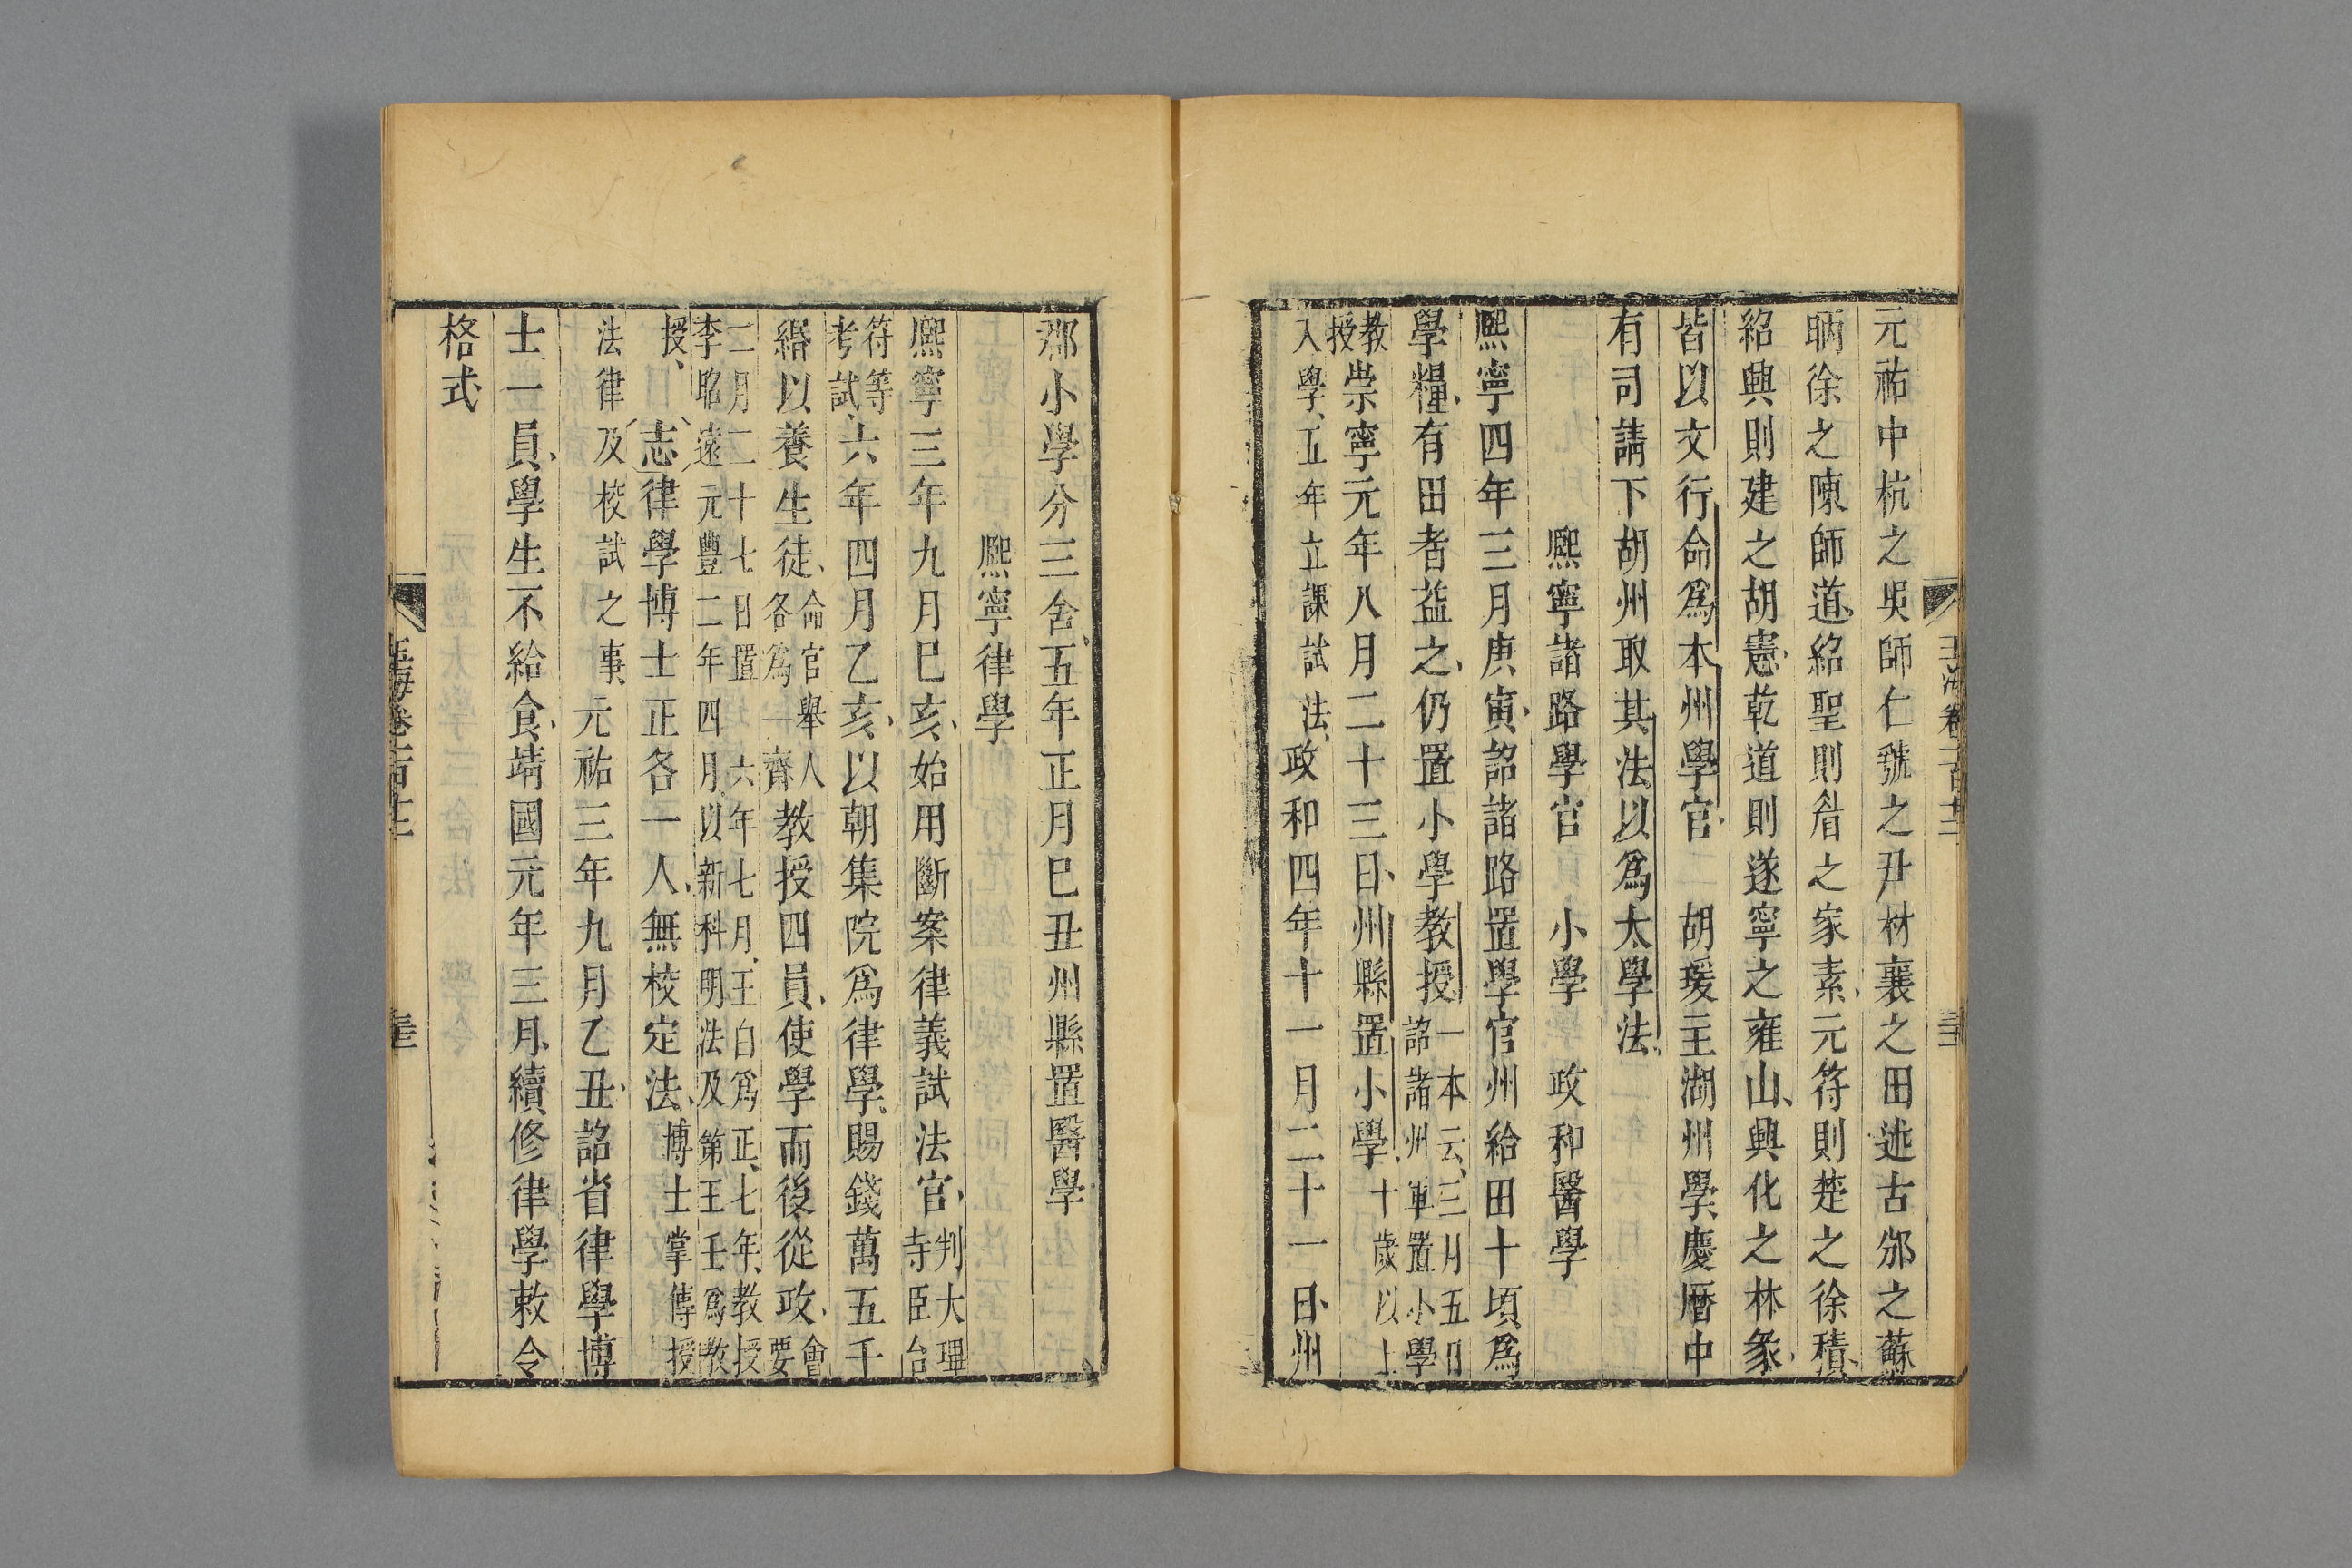 元祐中杭之吳師仁虢之尹材襄之田述古邠之蘇
昞徐之陳師道紹聖則眉之家素元符則楚之徐積
紹興則建之胡憲乾道則遂寧之雍山興化之林彖
皆以文行命爲本州學官 胡瑗主湖州學慶曆中
有司請下胡州取其法以爲太學法
熙寧諸路學官 小學 政和醫學
熙寧四年三月庚寅詔諸路置學官州給田十頃爲
學糧有田者益之仍置小學教授
一本云三月五日
詔諸州軍置小學
教
授
崇寧元年八月二十三日州縣置小學
十歲以上
入學五年立課試法
政和四年十一月二十一日州
玉海卷一百十二
郡小學分三舍五年正月己丑州縣置醫學
熙寧律學
熙寧三年九月己亥始用斷案律義試法官
判大理
寺臣台
符等
考試
六年四月乙亥以朝集院爲律學賜錢萬五千
緡以養生徒
命官舉人
各爲一齋
教授四員使學而後從政
會
要
二月二十七日置 六年七月王白爲正七年教授
李昭遠元豐二年四月以新科明法及第王壬爲教
授
志
律學博士正各一人無校定法
博士掌傳授
法律及校試之事
元祐三年九月乙丑詔省律學博
士一員學生不給食靖國元年三月續修律學敕令
格式